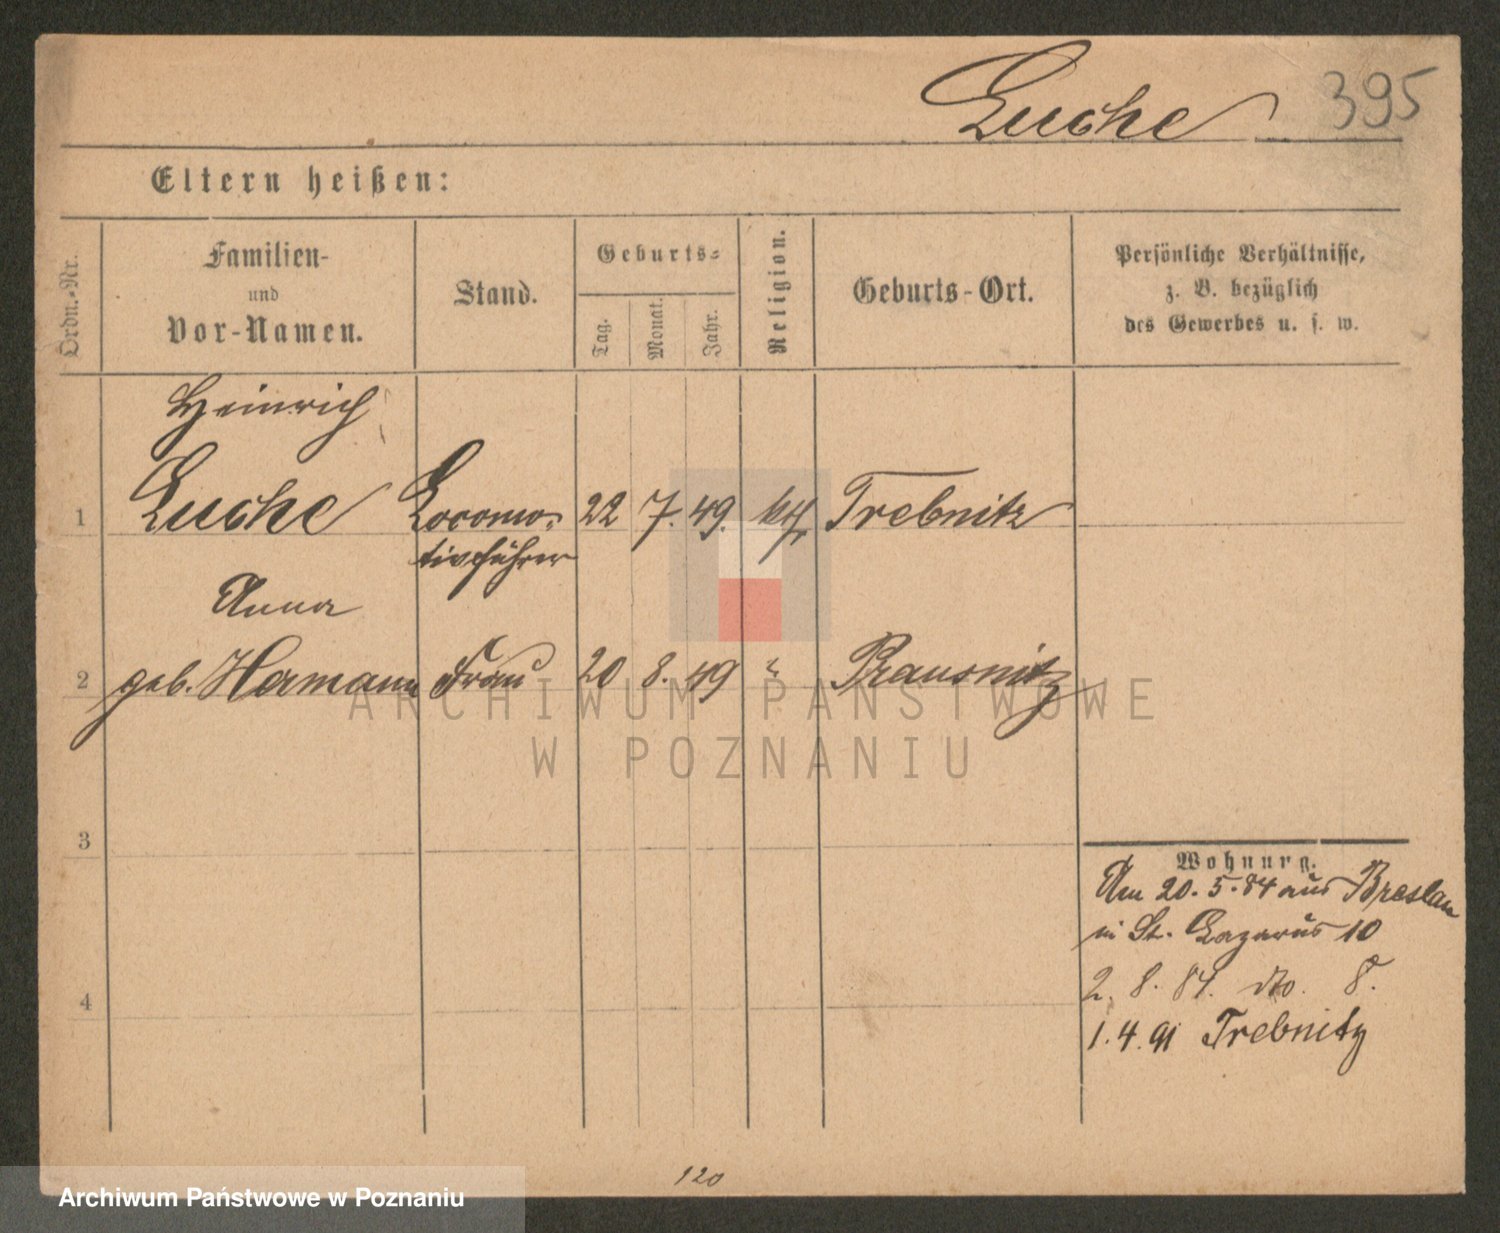 Luche 395
Eltern heißen:
Ordn.-Nr.
Familien-
und
Vor-Namen.
Stand.
Geburts-
Tag.
Monat.
Jahr.
Religion.
Geburts-Ort.
Persönliche Verhältnisse,
z. B. bezüglich
des Gewerbes u. s. w.
Heinrich
1 Luche Locomo- 22 7. 49. kth Trebnitz
tivführer
Anna
2 geb. Hermann Frau 20 8. 49 " Prausnitz
ARCHIWUM PAŃSTWOWE
W POZNANIU
3
Wohnung.
Am 20. 5. 84 aus Breslau
in St. Lazarus 10
2. 8. 84. dto. 8.
4
1. 4. 91 Trebnitz
120
Archiwum Państwowe w Poznaniu